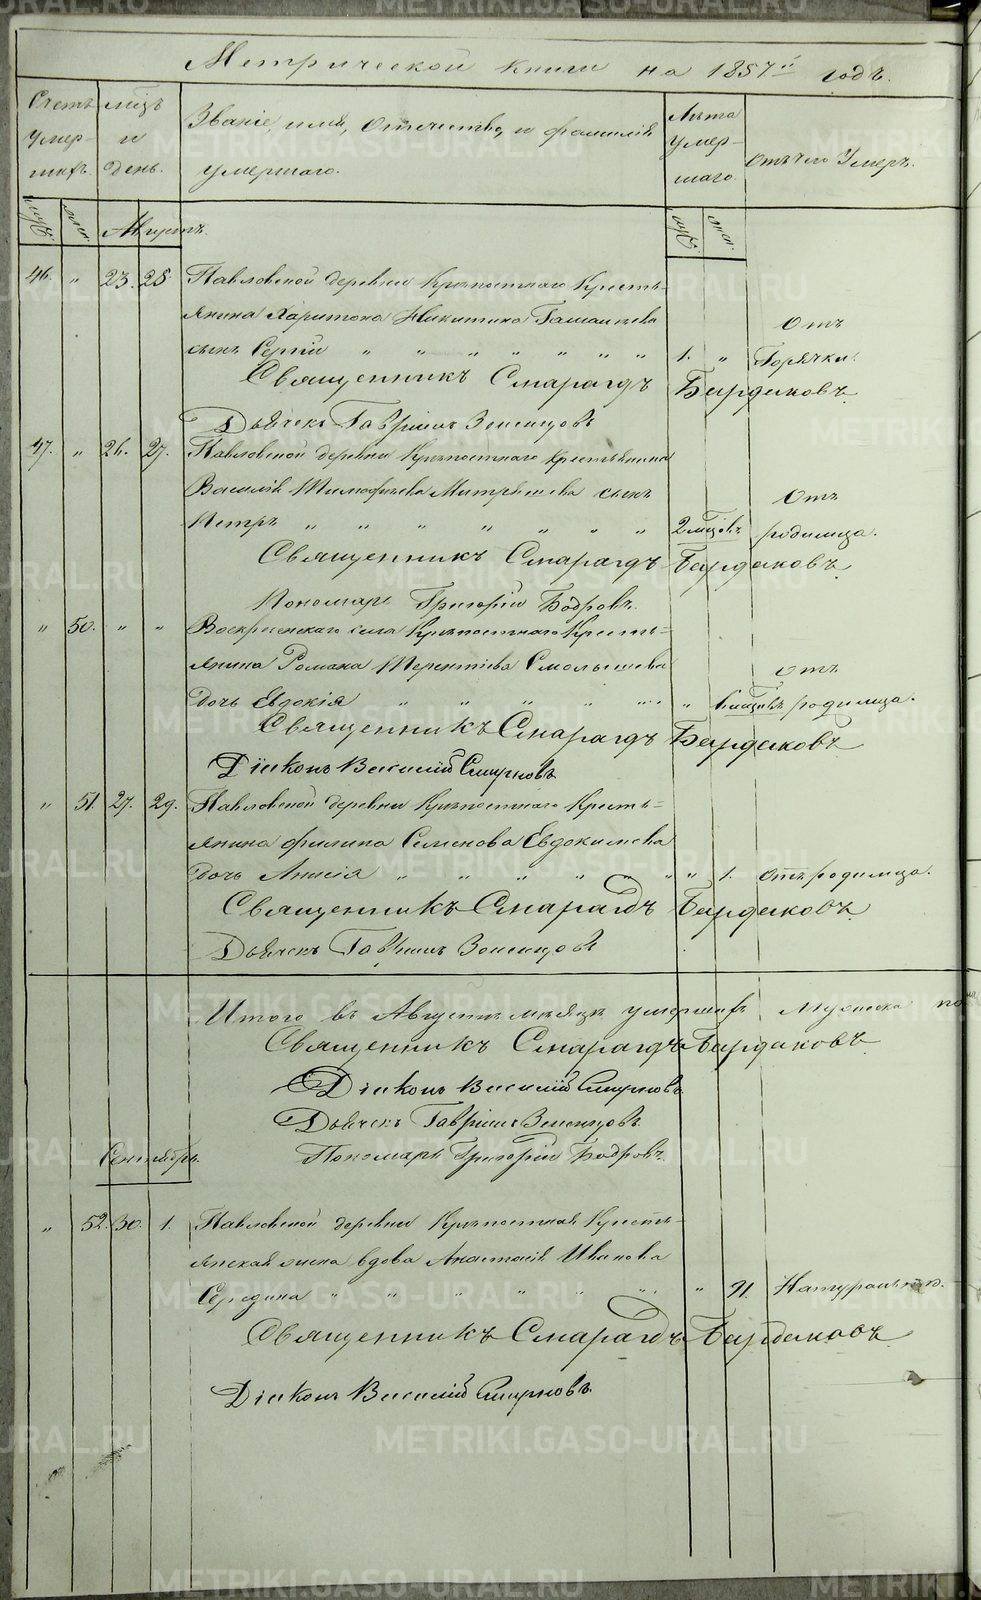 Метрической книги на 1857й годъ.
Счетъ умер-шихъ.
мцъ и день.
Званіе, имя, отечество, и фамилія умершаго.
Лѣта умер-шаго.
Отъ чего умеръ.
муж. жен. Августъ. муж. жен.
46. " 23. 25. Павловской деревни Крѣпостнаго Кресть-
янина Харитона Никитина
Отъ
сынъ Сергій " " " " " " " 1. " Горячки.
Священникъ Смарагдъ Бардаковъ
Дьячекъ Гавріилъ
47. " 26. 27. Павловской деревни Крѣпостнаго крестьянина
Василія Тимофѣева сынъ
Отъ
Петръ " " " " " " " 2 мцовъ родимца.
Священникъ Смарагдъ Бардаковъ
Пономарь Григорій Бодровъ.
" 50. " " Воскресенскаго села Крѣпостнаго Кресть=
янина Романа Терентіева Смолышева
отъ
дочь Евдокія " " " " " " " 6 мцовъ родимца.
Священникъ Смарагдъ Бардаковъ
Діаконъ Василій Смирновъ
" 51. 27. 29. Павловской деревни Крѣпостнаго Кресть=
янина Филипа Семенова Евдокимова
дочь Анисія " " " " " " " 1. отъ родимца.
Священникъ Смарагдъ Бардаковъ
Дьячекъ Гавріилъ
Итого въ Августѣ мѣсяцѣ умершихъ Мужеска по
Священникъ Смарагдъ Бардаковъ
Діаконъ Василій Смирновъ.
Дьячекъ Гавріилъ
Пономарь Григорій Бодровъ.
Сентябрь.
" 52. 30. 1. Павловской деревни Крѣпостная Кресть-
янская жена вдова Анастасія Иванова
Середина " " " " " " " 71. Натурально.
Священникъ Смарагдъ Бардаковъ
Діаконъ Василій Смирновъ.
METRIKI.GASO-URAL.RU